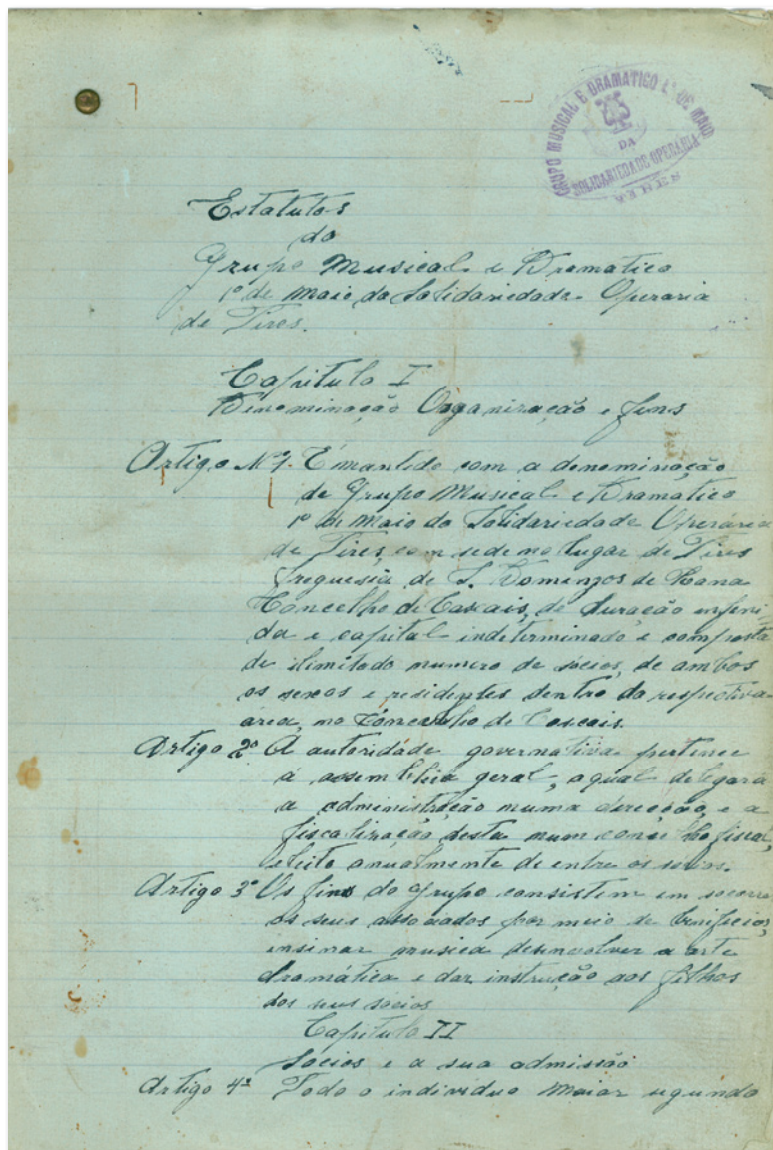 GRUPO MUSICAL E DRAMATICO 1º DE MAIO
DA
SOLIDARIEDADE OPERARIA
Estatutos
do
Grupo Musical e Dramatico
1º de Maio da Solidariedade Operaria
de Tires.
Capitulo I
Denominação Organização e fins
Artigo Nº1. É mantido com a denominação
de Grupo Musical e Dramatico
1º de Maio da Solidariedade Operária
de Tires, com sede no lugar de Tires
freguesia de S. Domingos de Rana
Concelho de Cascais, de duração enfeni-
da e capital indeterminado e composta
de ilimitado numero de sócios, de ambos
os sexos e residentes dentro da respectiva
área, no Concelho de Cascais.
Artigo 2º A autoridade governativa pertence
á assembleia geral, a qual delegará
a administração numa direcção, e a
fiscalização desta num conselho fiscal,
eleito anualmente de entre os socios.
Artigo 3º Os fins do grupo consistem em socorrer
os seus associados por meio de benificios,
ensinar musica desenvolver a arte
dramática e dar instrução aos filhos
dos seus socios
Capitulo II
Socios e a sua admissão
Artigo 4º Todo o individuo maior segundo